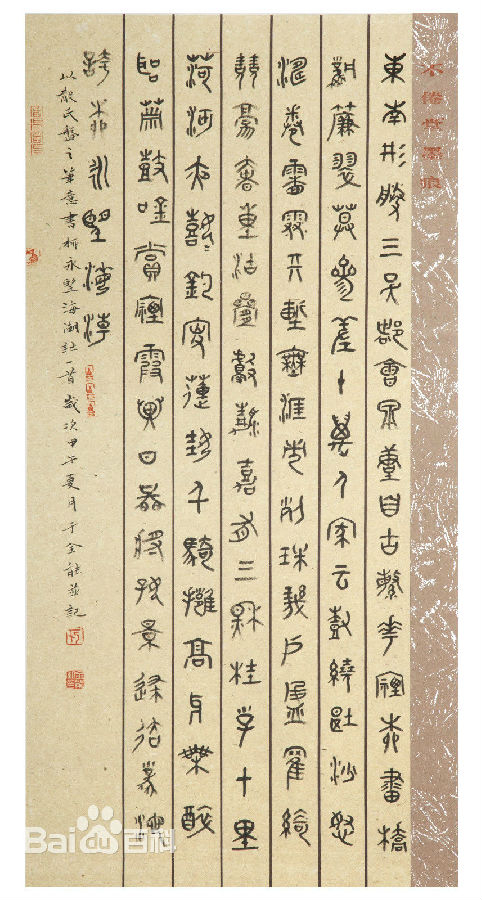 東南形勝三吳都會錢塘自古繁華煙柳畫橋
風簾翠幕參差十萬人家云樹繞堤沙怒
濤卷霜雪天塹無涯市列珠璣戶盈羅綺
競豪奢重湖疊巘清嘉有三秋桂子十里
荷夜嬉嬉釣叟蓮娃千騎擁高牙乘醉
聽簫鼓吟賞煙霞異日圖將好景歸去鳳池
誇柳永望海潮
以散氏盤之筆意書柳永望海潮詞一首歲次甲午夏月于金龍並記
Bai百科